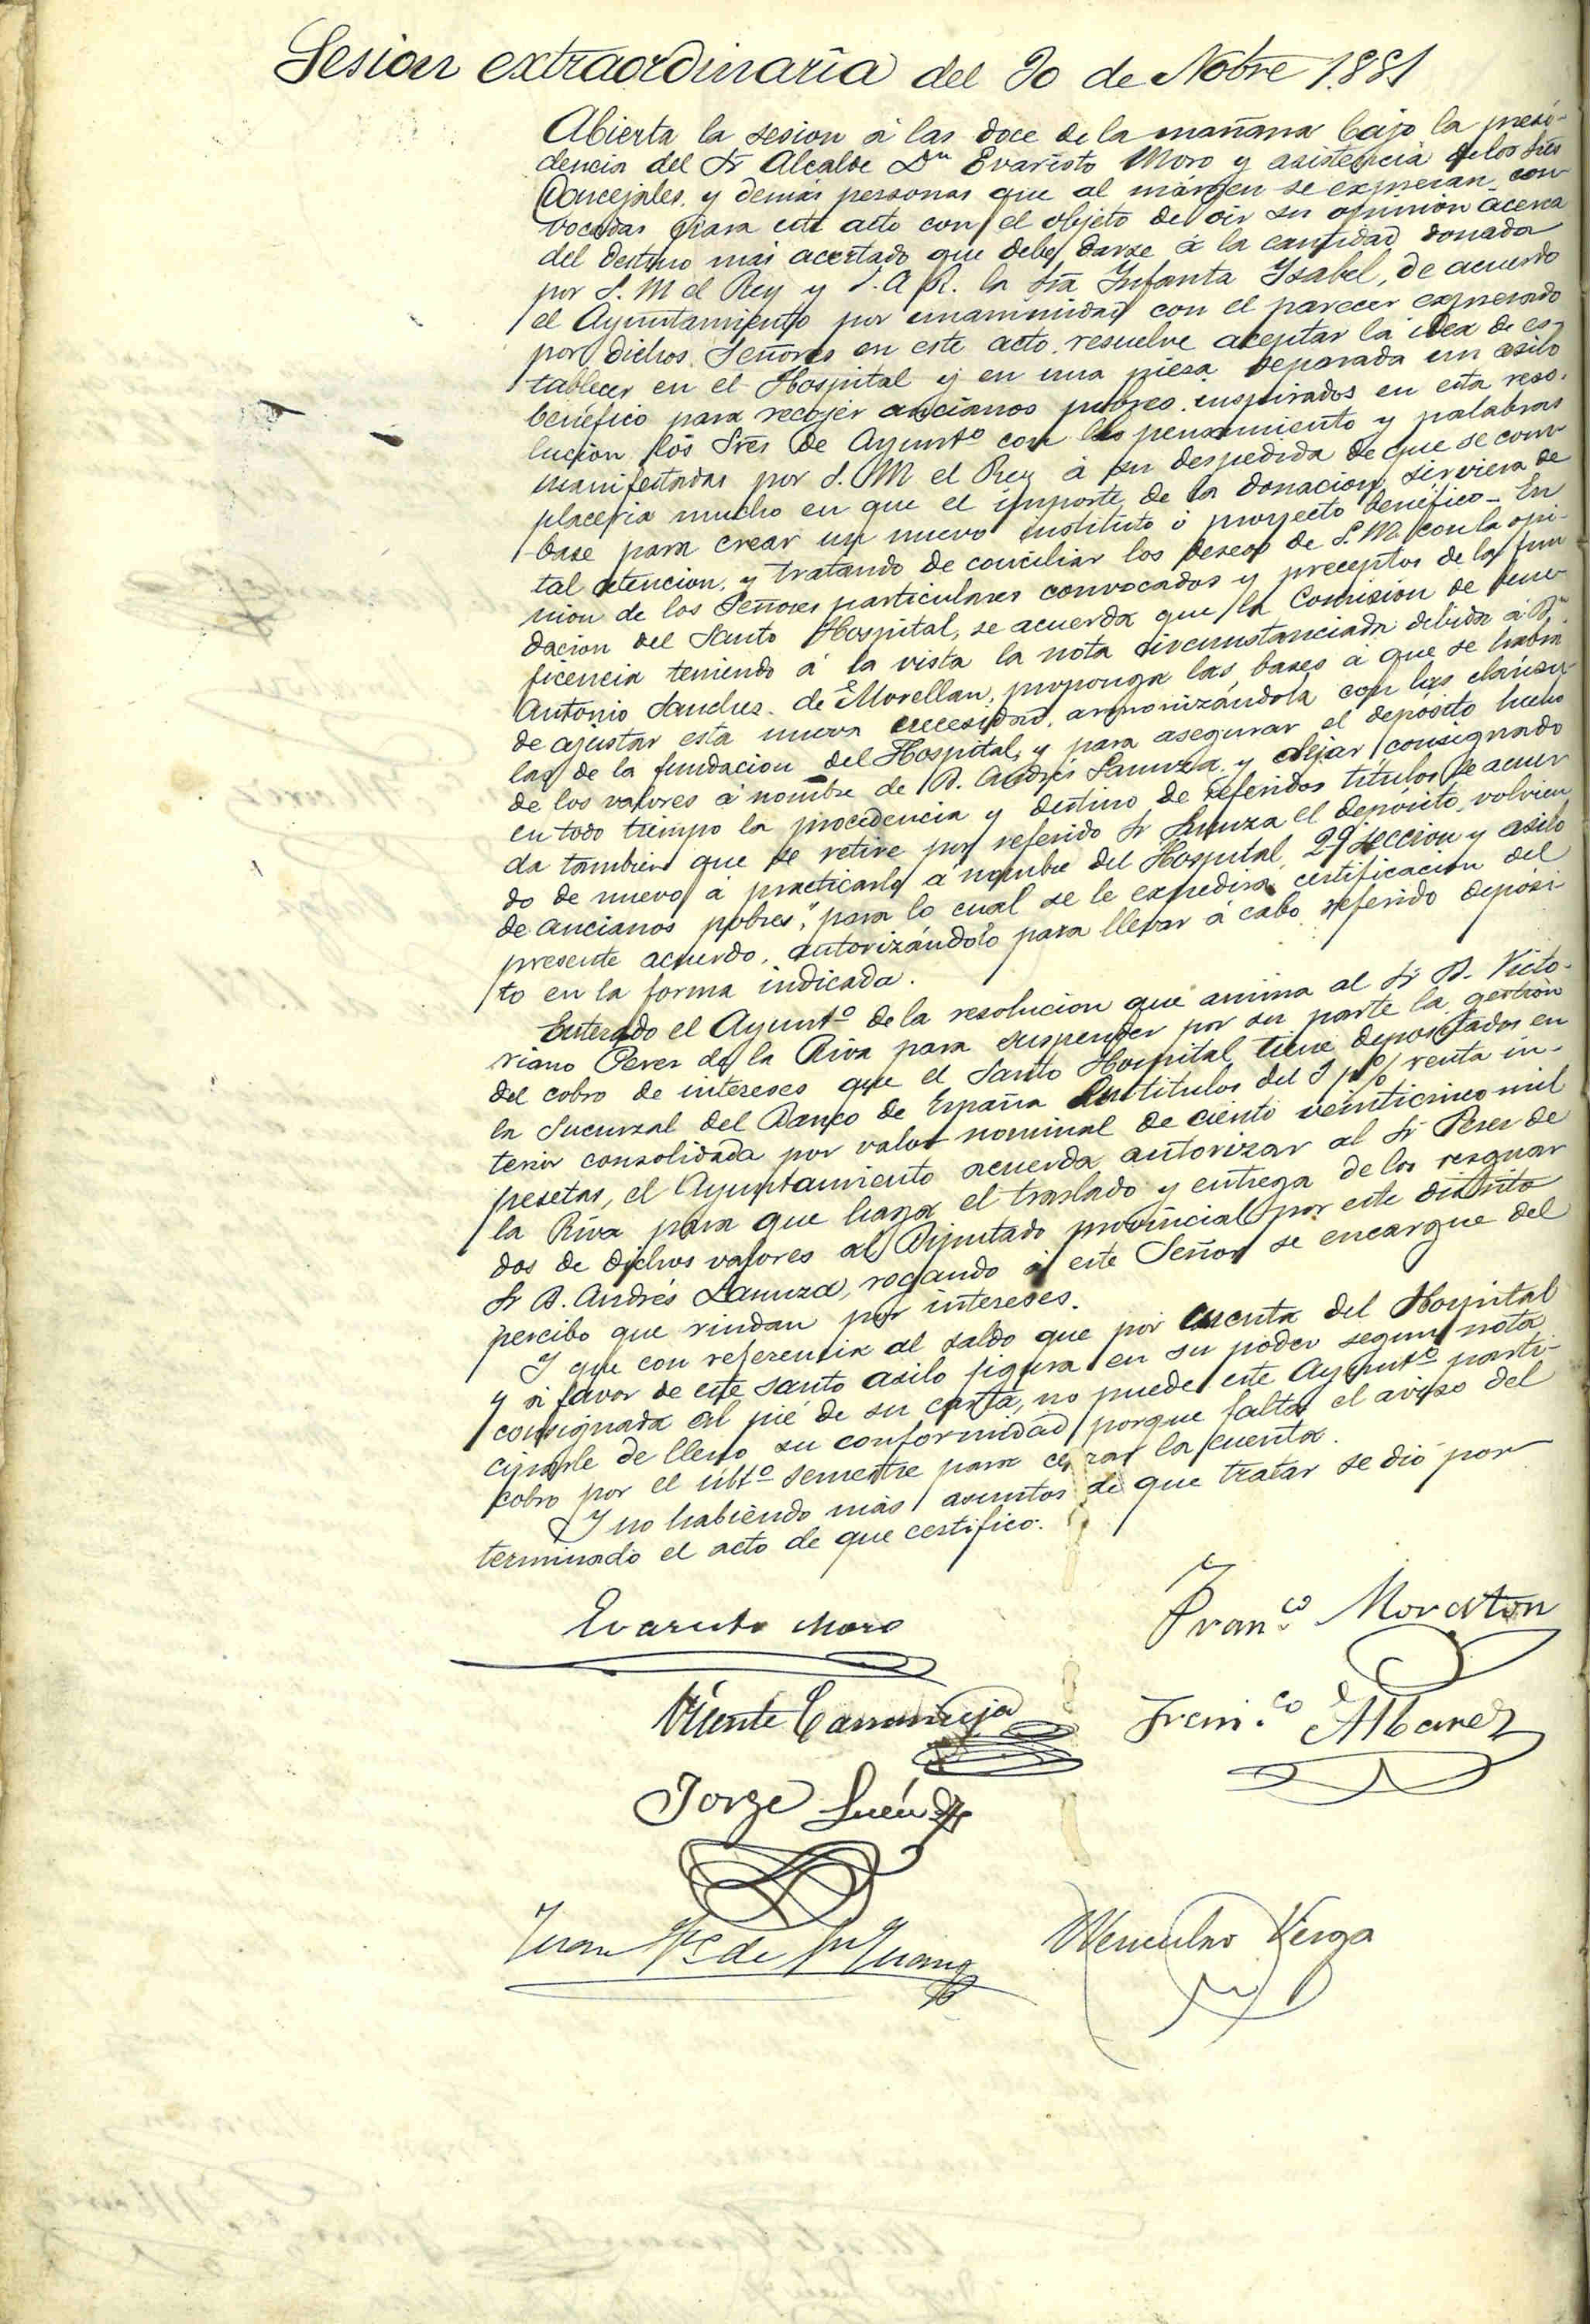 Sesion extraordinaria del 20 de Nobre 1.881
Abierta la sesion á las doce de la mañana bajo la presi-
dencia del Sr Alcalde Dn Evaristo Moro y asistencia de los Sres
Concejales y demás personas que al márgen se expresan, con
vocadas para este acto con el objeto de oir su opinion acerca
del destino mas acertado que debe darse á la cantidad donada
por S. M el Rey y S. A R. la Sra Infanta Ysabel, de acuerdo
el Ayuntamiento por unanimidad con el parecer expresado
por dichos Señores en este acto, resuelve aceptar la idea de es-
tablecer en el Hospital y en una pieza separada un asilo
benéfico para recojer ancianos pobres, inspirados en esta reso-
lucion los Sres de Ayuntº con los pensamiento y palabras
manifestadas por S. M el Rey á su despedida de que se com
placeria mucho en que el importe de la donacion, sirviera de
base para crear un nuevo instituto ó proyecto benéfico - En
tal atencion, y tratando de conciliar los deseos de S. M. con la opi-
nion de los Señores particulares convocados y preceptos de la fun
dacion del Santo Hospital, se acuerda que la Comision de Bene
ficencia teniendo á la vista la nota circunstanciada debida á Dn
Antonio Sanchez de Movellan, proponga las bases á que se habra
de ajustar esta nueva necesidad, armonizándola con las cláusu
las de la fundacion del Hospital, y para asegurar el depósito hecho
de los valores á nombre de D. Andrés Lanuza y dejar consignado
en todo tiempo la procedencia y destino de referidos titulos se acuer
da tambien que se retire por referido Sr Lanuza el depósito, volvien
do de nuevo á practicarlo á nombre del Hospital, 2ª seccion y asilo
de ancianos pobres", para lo cual se le expedirá certificacion del
presente acuerdo, autorizándolo para llevar á cabo referido depósi-
to en la forma indicada.
Enterado el Ayuntº de la resolucion que anima al Sr D. Victo-
riano Perez de la Riva para suspender por su parte la gestion
del cobro de intereses que el Santo Hospital tiene depositados en
la Sucursal del Banco de España en titulos del 3 p% renta in-
terior consolidada por valor nominal de ciento veinticinco mil
pesetas, el Ayuntamiento acuerda autorizar al Sr Perez de
la Riva para que haga el traslado y entrega de los resguar
dos de dichos valores al Diputado provincial por este distrito
Sr D. Andrés Lanuza, rogando á este Señor se encargue del
percibo que rindan por intereses.
Y que con referencia al saldo que por cuenta del Hospital
y á favor de este santo asilo figura en su poder segun nota
consignada al pié de su carta, no puede este Ayuntº parti-
ciparle de lleno su conformidad porque falta el aviso del
cobro por el últº semestre para cerrar la cuenta.
Y no habiendo más asuntos de que tratar se dió por
terminado el acto de que certifico.
Evaristo Moro
Franco Moraton
Vicente
Franco Albarez
Jorge
Juan de
Wenceslao Verga